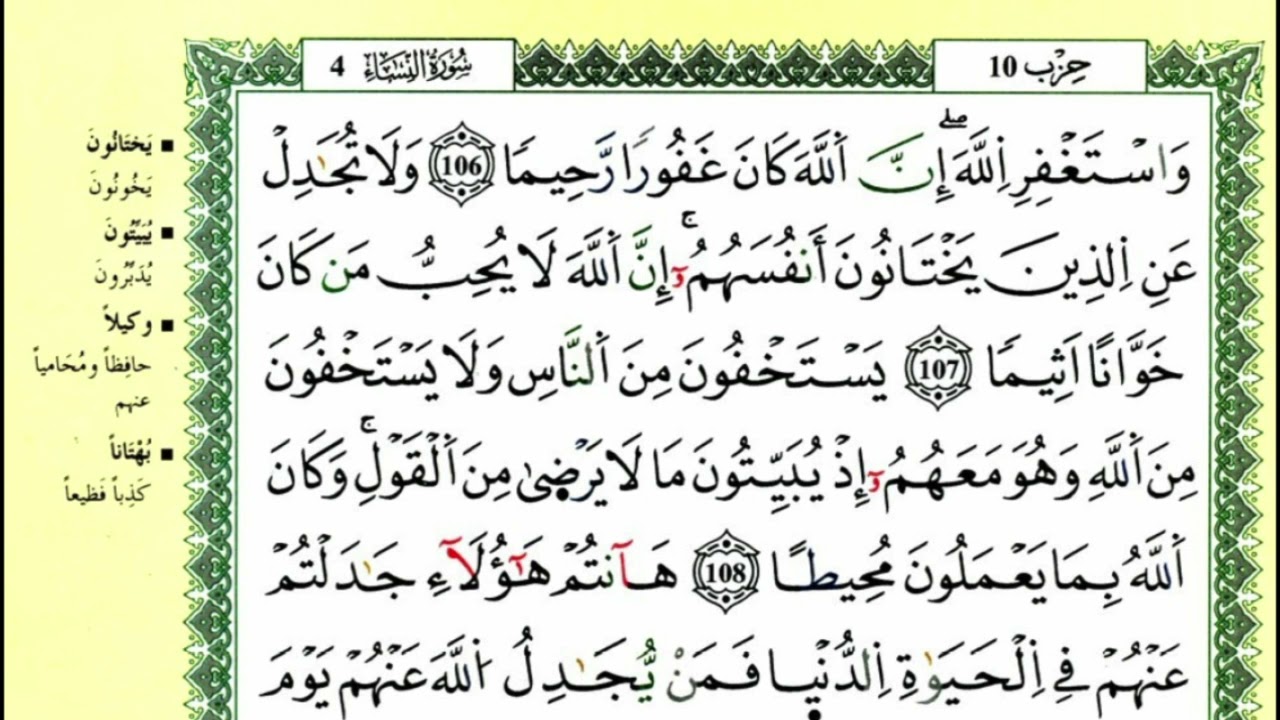 حِزْب 10
سُورَةُ النِّسَاءِ 4
وَاسْتَغْفِرِ اِللَّهَ إِنَّ اَللَّهَ كَانَ غَفُورًا رَّحِيمًا 106 وَلَا تُجَٰدِلْ
عَنِ اِلذِينَ يَخْتَانُونَ أَنفُسَهُمُۥٓ إِنَّ اَللَّهَ لَا يُحِبُّ مَن كَانَ
خَوَّانًا اَثِيمًا 107 يَسْتَخْفُونَ مِنَ اَلنَّاسِ وَلَا يَسْتَخْفُونَ
مِنَ اَللَّهِ وَهُوَ مَعَهُمُۥٓ إِذْ يُبَيِّتُونَ مَا لَا يَرْضىٰ مِنَ اَلْقَوْلِ وَكَانَ
اَللَّهُ بِمَا يَعْمَلُونَ مُحِيطًا 108 هَآنتُمْ هَٰٓؤُلَآءِ جَٰدَلْتُمْ
عَنْهُمْ فِي اِلْحَيَوٰةِ اِلدُّنْيا فَمَنْ يُّجَٰدِلُ اُللَّهَ عَنْهُمْ يَوْمَ
■ يَختَانُونَ
يَخُونُونَ
■ يُبَيِّتُونَ
يُدَبِّرُونَ
■ وكيلاً
حافِظاً ومُحَامياً
عنهم
■ بُهْتَاناً
كَذِباً فَظيعاً